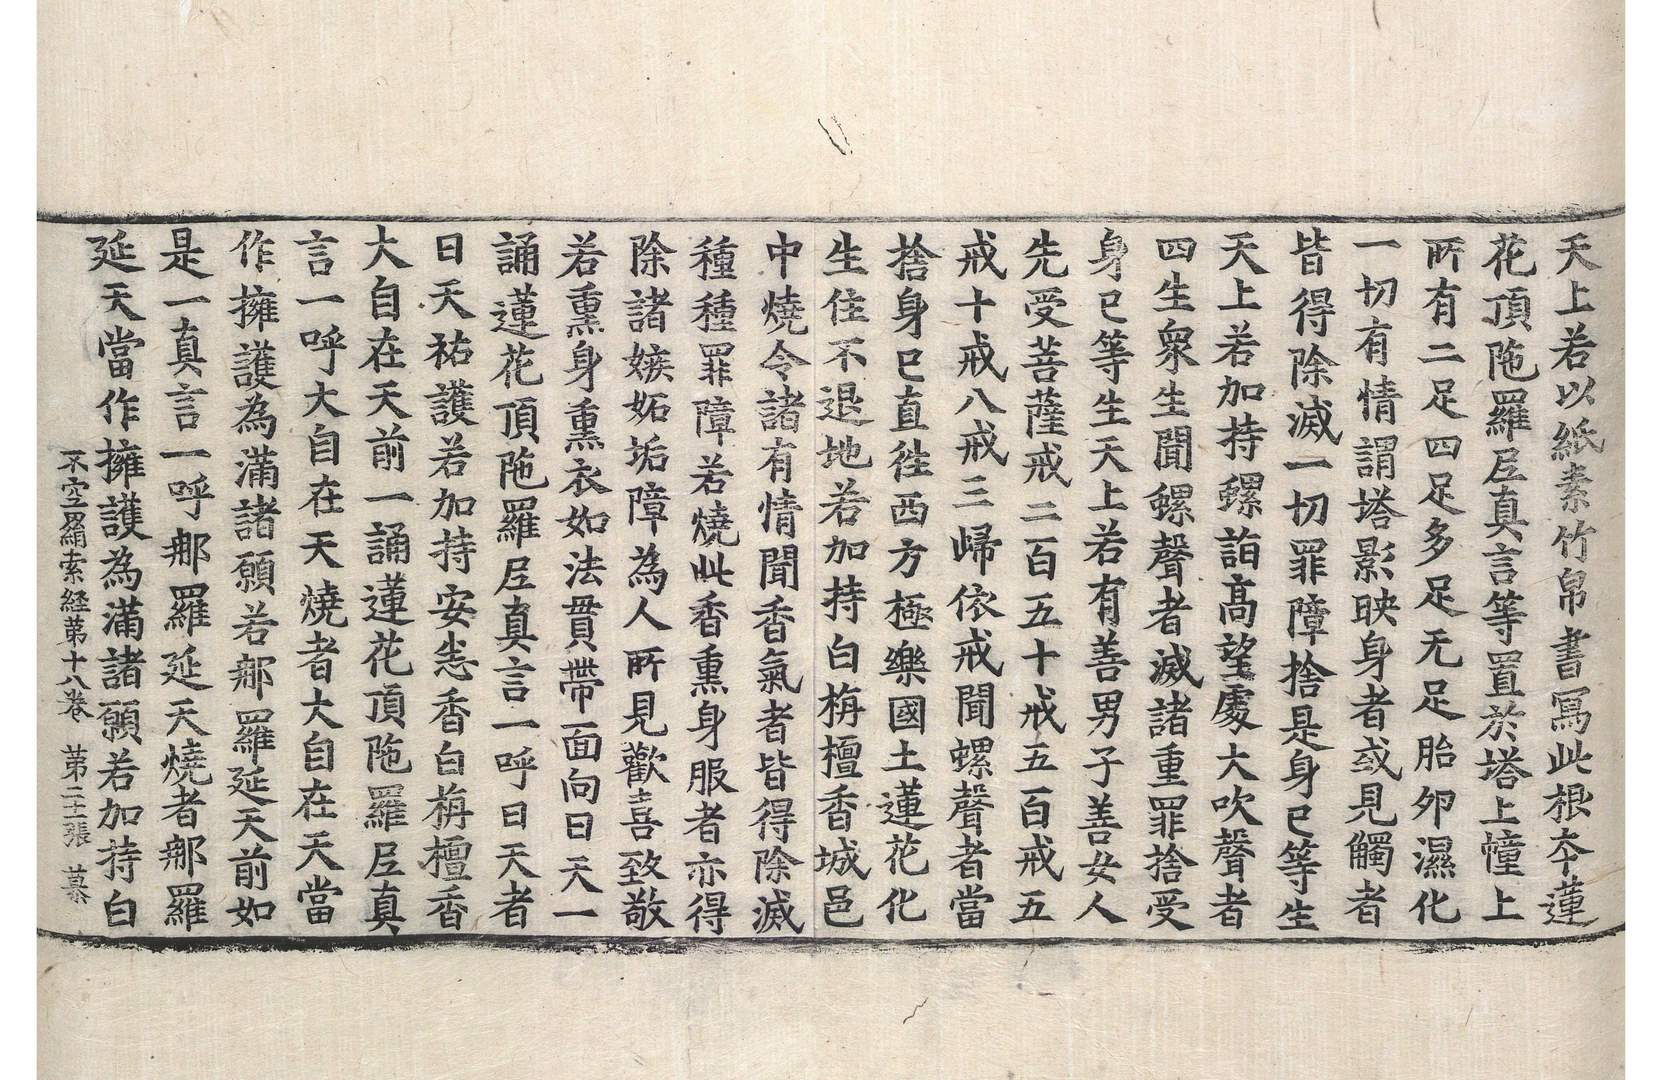 天上若以紙素竹帛書寫此根夲蓮
花頂陁羅𡰱真言等置於塔上幢上
所有二足四足多足无足胎卵濕化
一切有情謂塔影映身者或見觸者
皆得除滅一切罪障捨是身已等生
天上若加持螺詣高望處大吹聲者
四生衆生聞螺聲者滅諸重罪捨受
身已等生天上若有善男子善女人
先受菩薩戒二百五十戒五百戒五
戒十戒八戒三歸依戒聞螺聲者當
捨身已直往西方極樂國土蓮花化
生住不退地若加持白栴檀香城邑
中燒令諸有情聞香氣者皆得除滅
種種罪障若燒此香熏身服者亦得
除諸嫉妬垢障為人所見歡喜致敬
若熏身熏衣如法貫帶面向日天一
誦蓮花頂陁羅𡰱真言一呼日天者
日天祐護若加持安悉香白栴檀香
大自在天前一誦蓮花頂陁羅𡰱真
言一呼大自在天燒者大自在天當
作擁護為滿諸願若那羅延天前如
是一真言一呼那羅延天燒者那羅
延天當作擁護為滿諸願若加持白
不空羂索経苐十八卷 苐二十張 慕